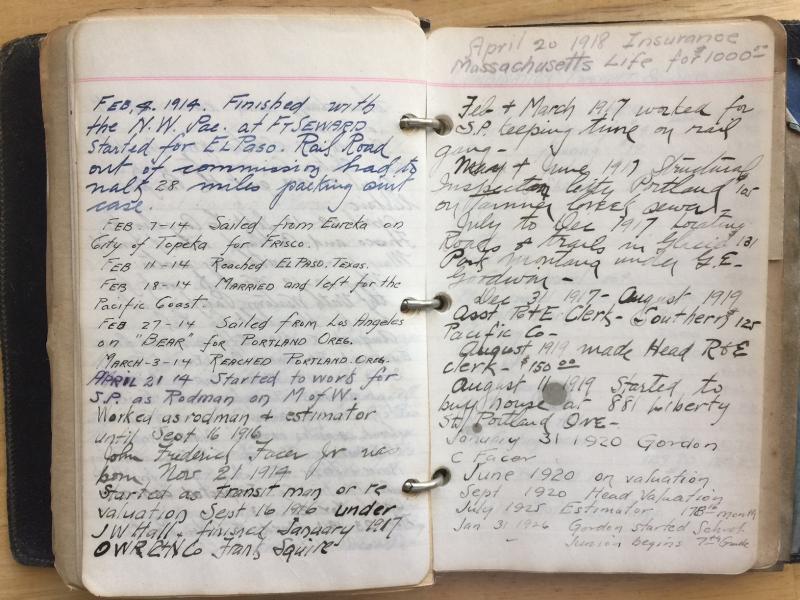 FEB. 4. 1914. Finished with
the N.W. Pac. at FT SEWARD
started for EL PASO. Rail Road
out of commission had to
walk 28 miles packing suit
case.
FEB 7-14 Sailed from Eureka on
City of Topeka for Frisco.
FEB 11-14 Reached EL PASO, TEXAS.
FEB 18-14 MARRIED and left for the
Pacific Coast.
FEB 27-14 Sailed from Los Angeles
on "BEAR" for PORTLAND OREG.
MARCH-3-14 REACHED PORTLAND. OREG.
APRIL 21 14 Started to work for
S.P. as Rodman on M of W.
Worked as rodman & estimator
until Sept 16 1916
John Frederick Facer Jr was
born Nov 21 1914
Started as Transit man or re
valuation Sept 16 1916 under
J W Hall. finished January 1917
OWR & N Co Frank Squire
April 20 1918 Insurance
Massachusetts Life for $1000.00
Feb + March 1917 worked for
S.P. keeping time on rail
gang -
May + June 1917 Structural
Inspector City Portland $105
on Tanner Creek sewer
July to Dec 1917 Locating
Roads & trails in Glacier 131
Park Montana under G.E.
Goodwin -
Dec 31 1917 - August 1919
Asst R&E Clerk - Southern $125
Pacific Co -
August 1919 made Head R&E
Clerk - $150.00
August 11 1919 Started to
buy house at 881 Liberty
St, Portland ORE -
January 31 1920 Gordon
C Facer
June 1920 on valuation
Sept 1920 Head Valuation
July 1925 Estimator month
Jan 31 1926 Gordon started School
Junior begins 7th Grade